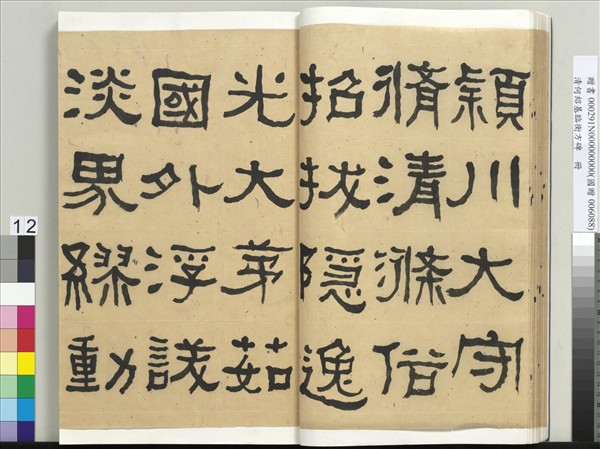 穎川大守
脩清滌俗
招拔隱逸
光大弟茹
國外浮議
淡界繆動
贈書 000291N000000000(國贈 006088)
清何紹基臨衡方碑 冊
12